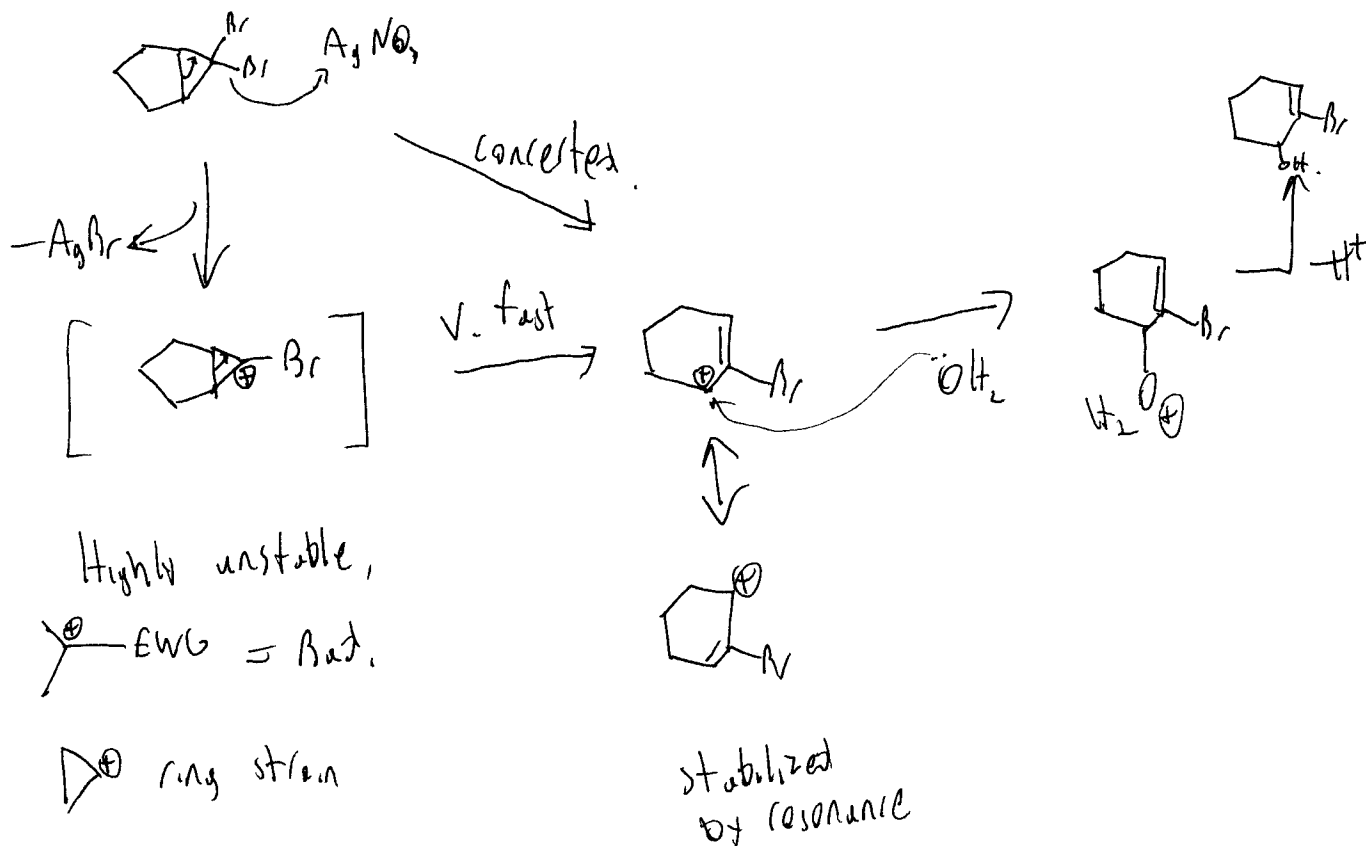 Br
Br
AgNO3
concerted.
-AgBr
Br
⊕
V. fast
⊕
Br
ÖH2
Br
H2O⊕
-H+
Br
OH.
Highly unstable,
⊕ EWG = Bad.
⊕ ring strain
⊕
Br
stabilized
by resonance